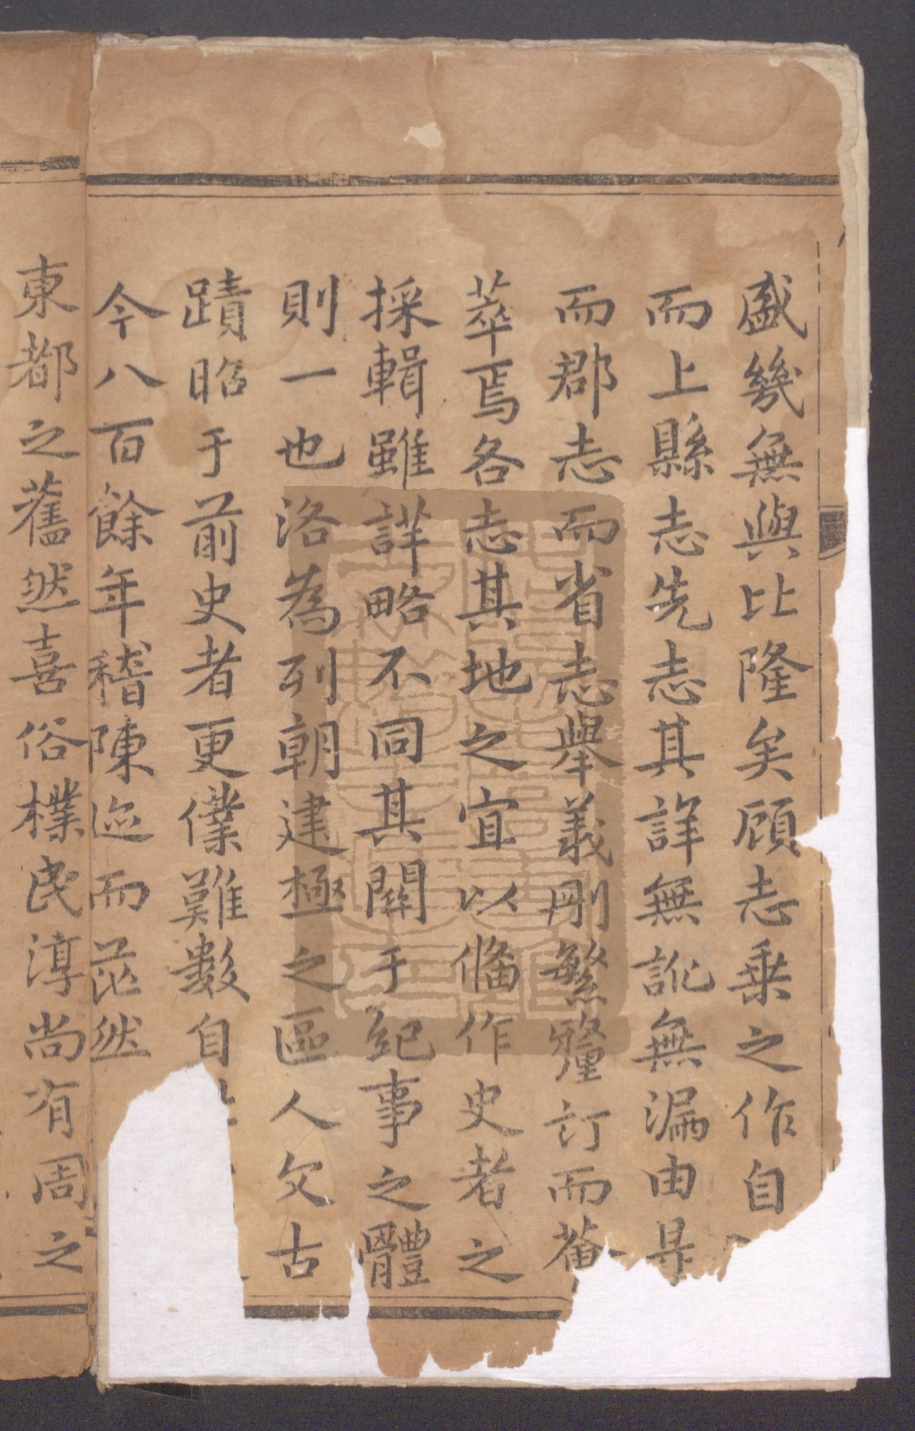 盛幾無與比隆矣顧志乗之作自
而上縣志先志其詳無訛無漏由是
而郡志而省志舉義刪繁釐訂而薈
萃焉各志其地之宜以偹作史者之
採輯雖詳略不同其關于紀事之體
則一也洛為列朝建極之區人文古
蹟昭于前史者更僕難數自
今八百餘年稽陳迹而茫然
東都之舊然喜俗樸民淳尚有周之